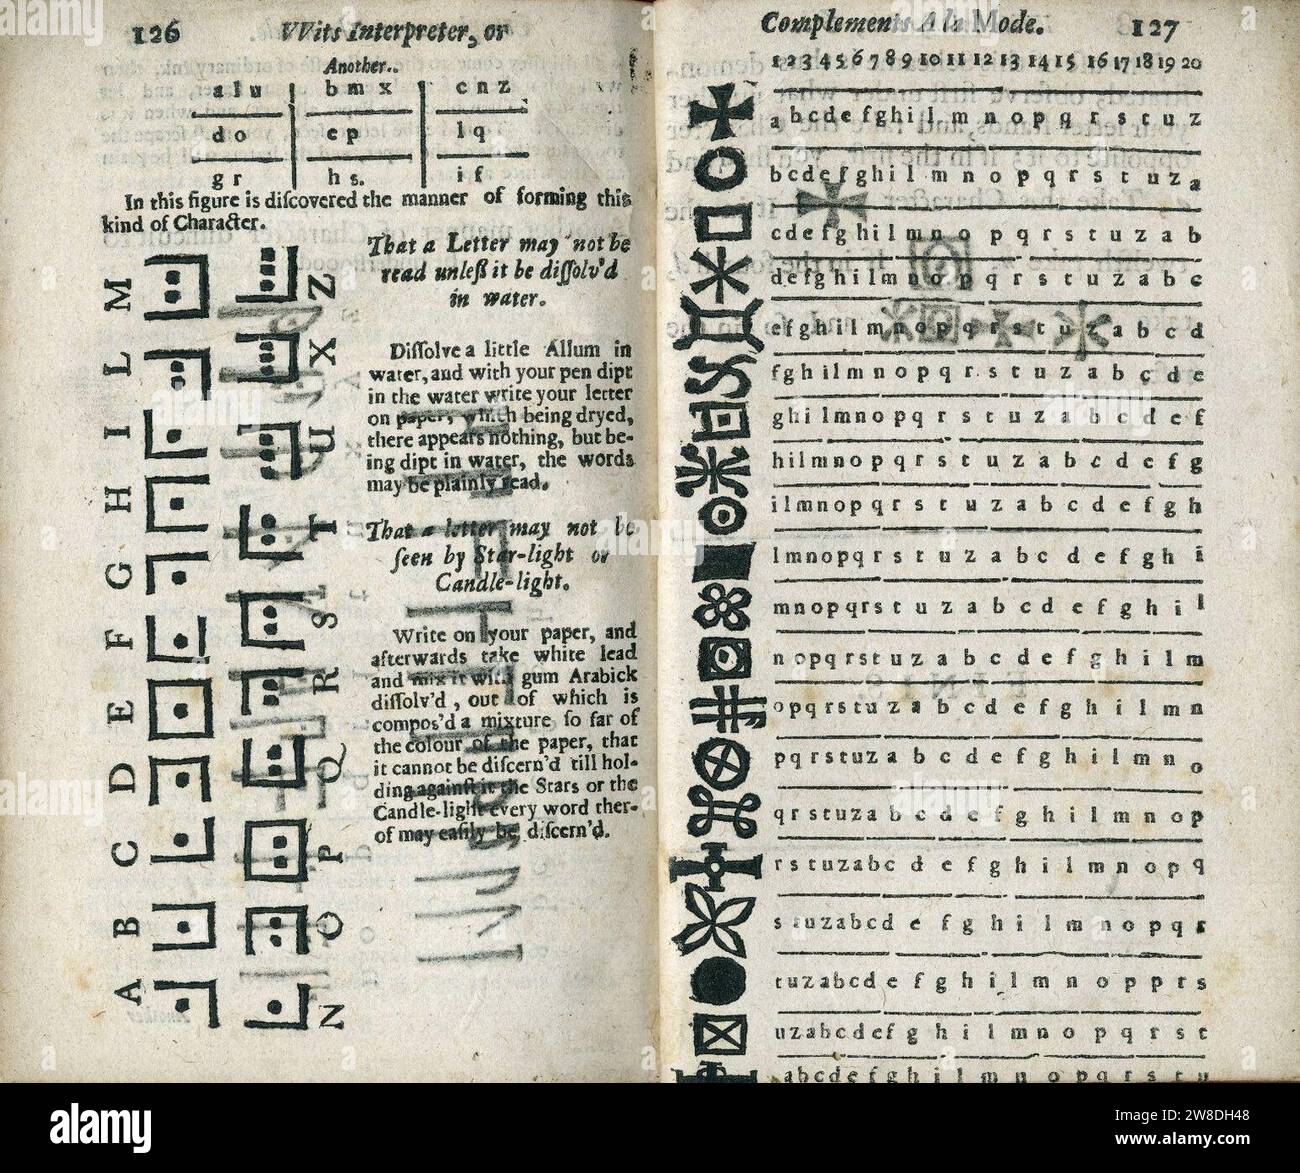 126 VVits Interpreter, or
Another..
a l u b m x c n z
d o e p l q
g r h s. i f
In this figure is diſcovered the manner of forming this
kind of Character.
M
L
I
H
G
F
E
D
C
B
A
Z
X
U
T
S
R
Q
P
O
N
That a Letter may not be
read unleſt it be diſſolv'd
in water.
Diſſolve a little Allum in
water, and with your pen dipt
in the water write your letter
on paper, which being dryed,
there appears nothing, but be-
ing dipt in water, the words
may be plainly read.
That a letter may not be
ſeen by Star-light or
Candle-light.
Write on your paper, and
afterwards take white lead
and mix it with gum Arabick
diſſolv'd, out of which is
compos'd a mixture ſo far of
the colour of the paper, that
it cannot be diſcern'd till hol-
ding againſt it the Stars or the
Candle-light every word ther-
of may eaſily be diſcern'd.
Complements A la Mode. 127
1 2 3 4 5 6 7 8 9 10 11 12 13 14 15 16 17 18 19 20
a b c d e f g h i l m n o p q r s t u z
b c d e f g h i l m n o p q r s t u z a
c d e f g h i l m n o p q r s t u z a b
d e f g h i l m n o p q r s t u z a b c
e f g h i l m n o p q r s t u z a b c d
f g h i l m n o p q r s t u z a b c d e
g h i l m n o p q r s t u z a b c d e f
h i l m n o p q r s t u z a b c d e f g
i l m n o p q r s t u z a b c d e f g h
l m n o p q r s t u z a b c d e f g h i
m n o p q r s t u z a b c d e f g h i l
n o p q r s t u z a b c d e f g h i l m
o p q r s t u z a b c d e f g h i l m n
p q r s t u z a b c d e f g h i l m n o
q r s t u z a b c d e f g h i l m n o p
r s t u z a b c d e f g h i l m n o p q
s t u z a b c d e f g h i l m n o p q r
t u z a b c d e f g h i l m n o p p r s
u z a b c d e f g h i l m n o p q r s t
a b c d e f g h i l m n o p q r s t u
alamy
Image ID: 2W8DH48
www.alamy.com